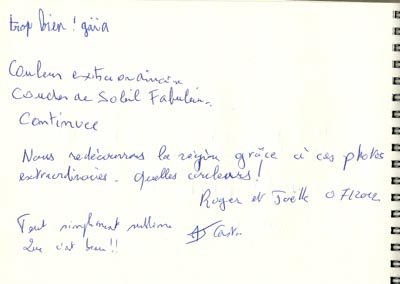 trop bien ! gaïa
Couleur extraordinaire
Coucher de Soleil Fabuleux.
Continuez
Nous redécouvrons la région grâce à ces photos
extraordinaires. Quelles couleurs !
Roger et Joëlle 07/2012
Tout simplement sublime
Que c'est beau !!